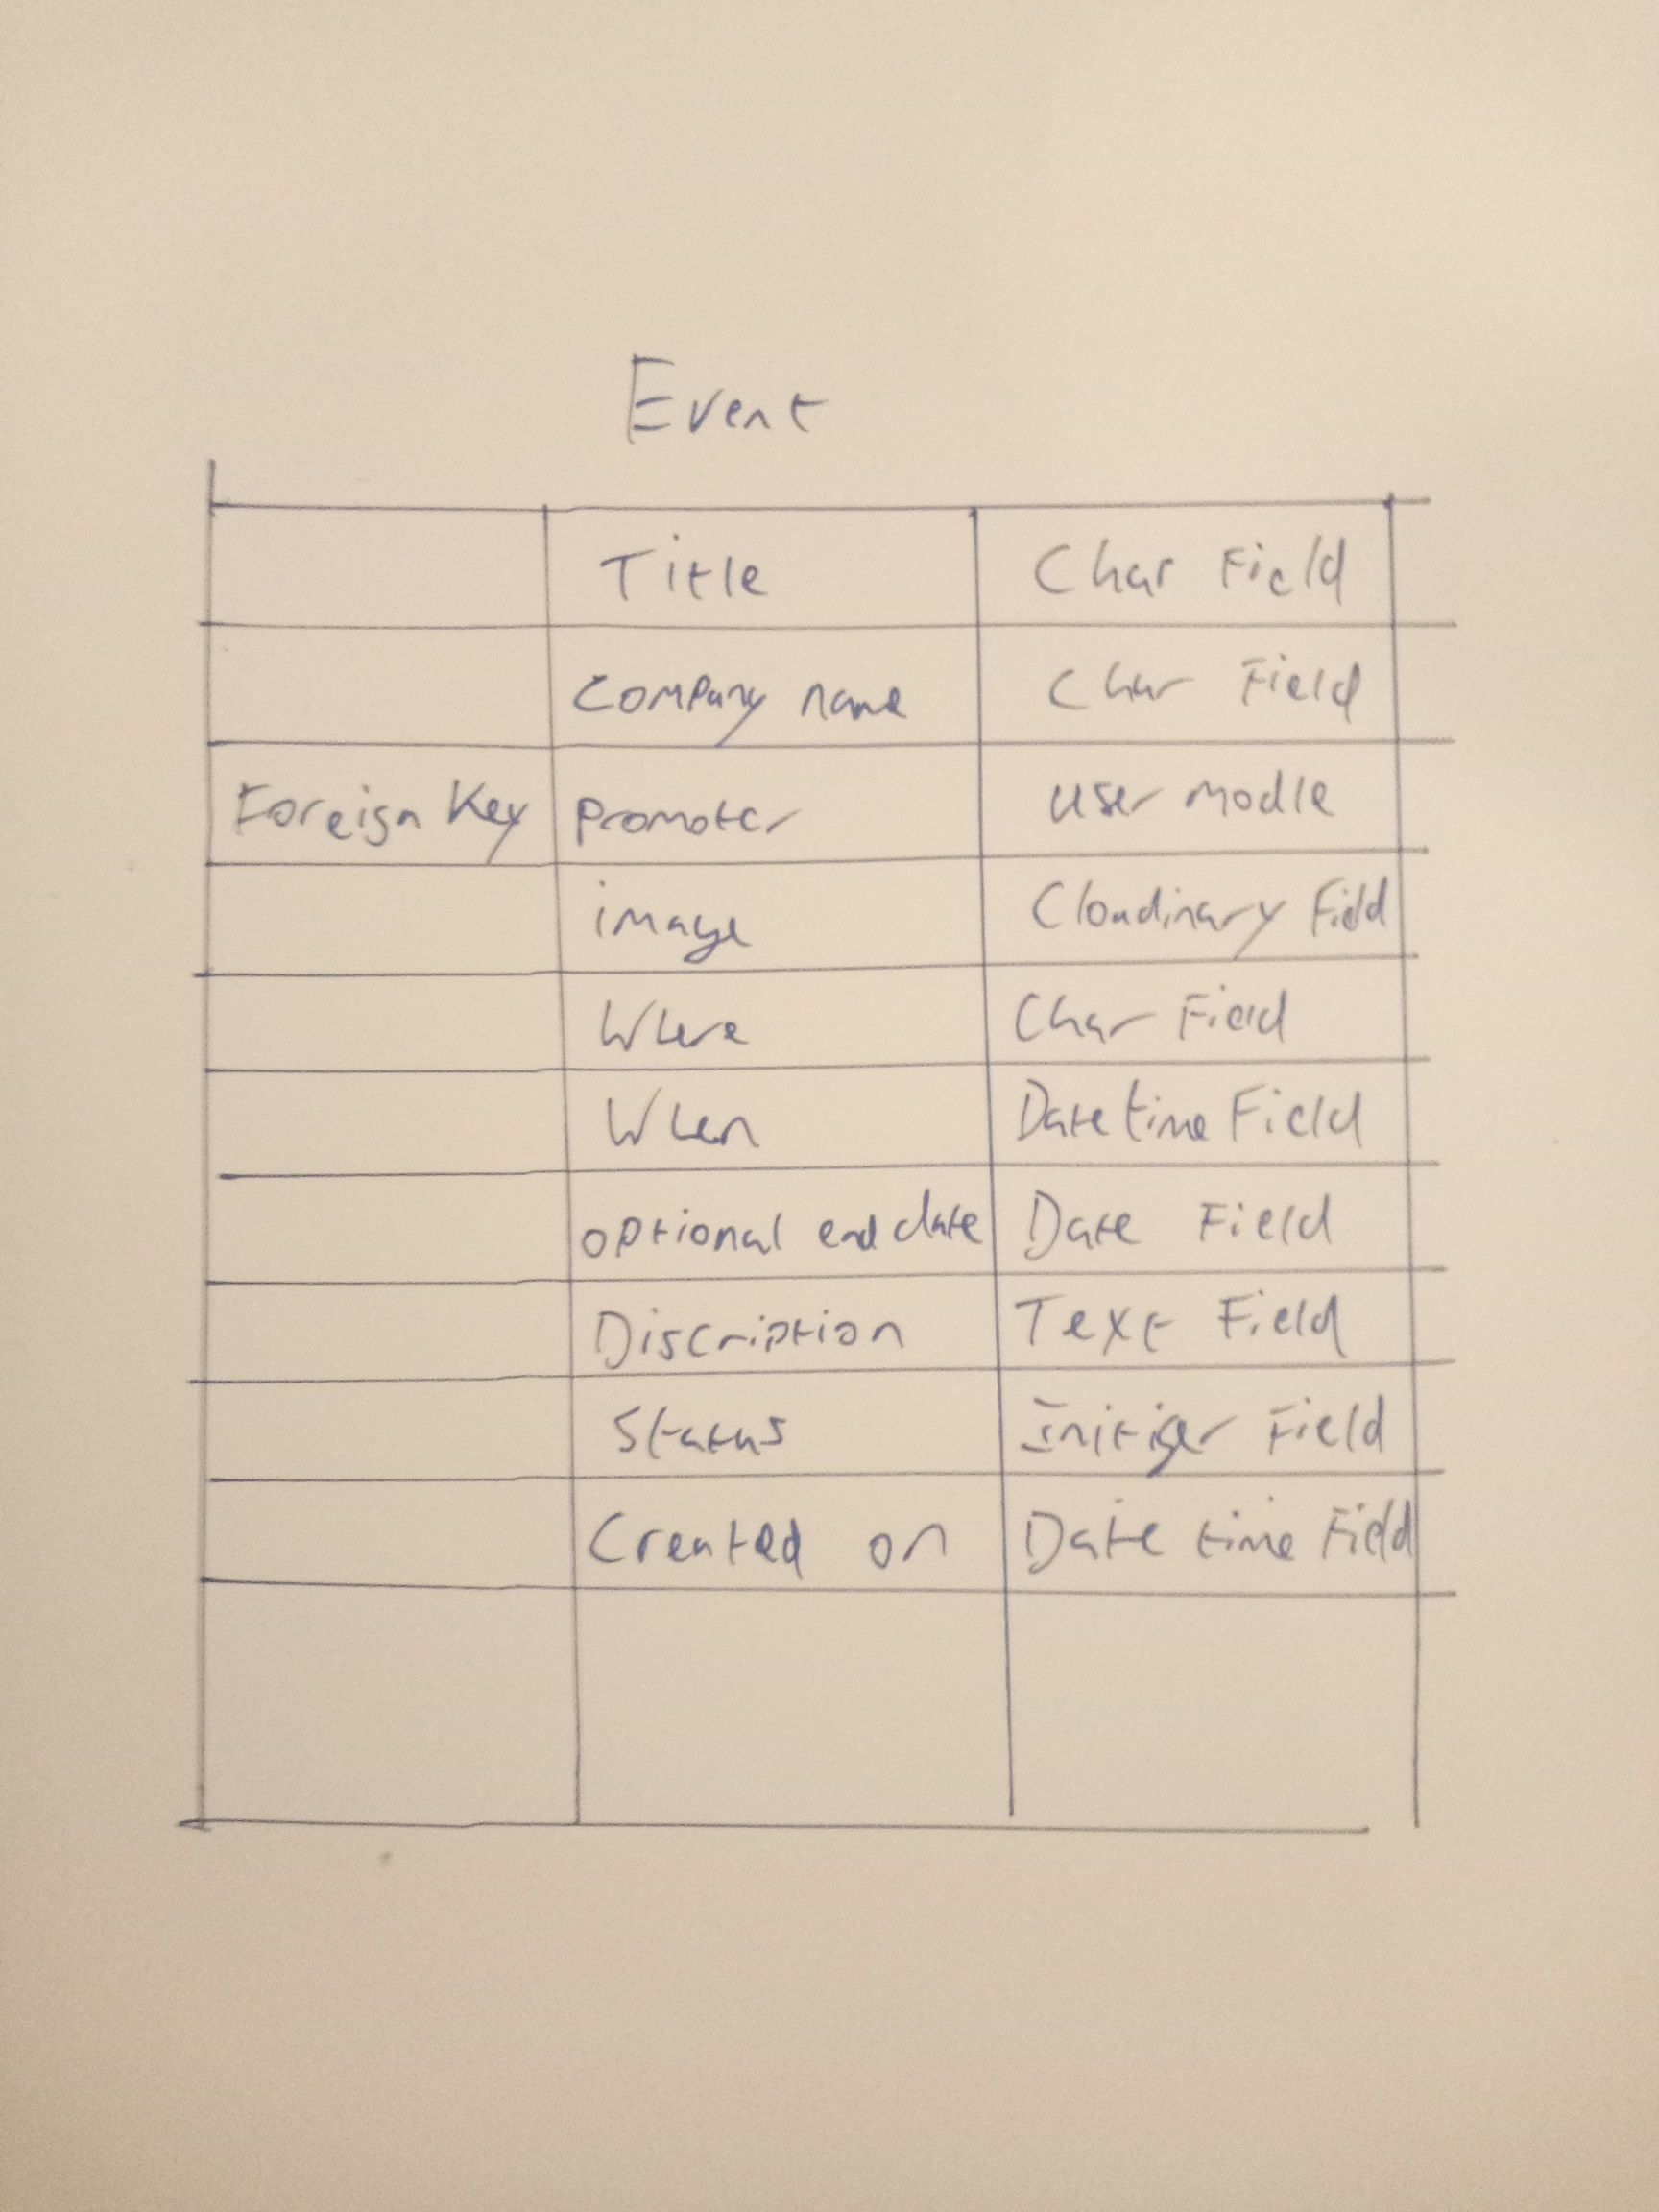 Event
Title Char Field
Company name Char Field
Foreign Key promoter user modle
image Cloudinary Field
Where Char Field
When Date time Field
optional end date Date Field
Discription Text Field
Status Initiger Field
Created on Date time Field